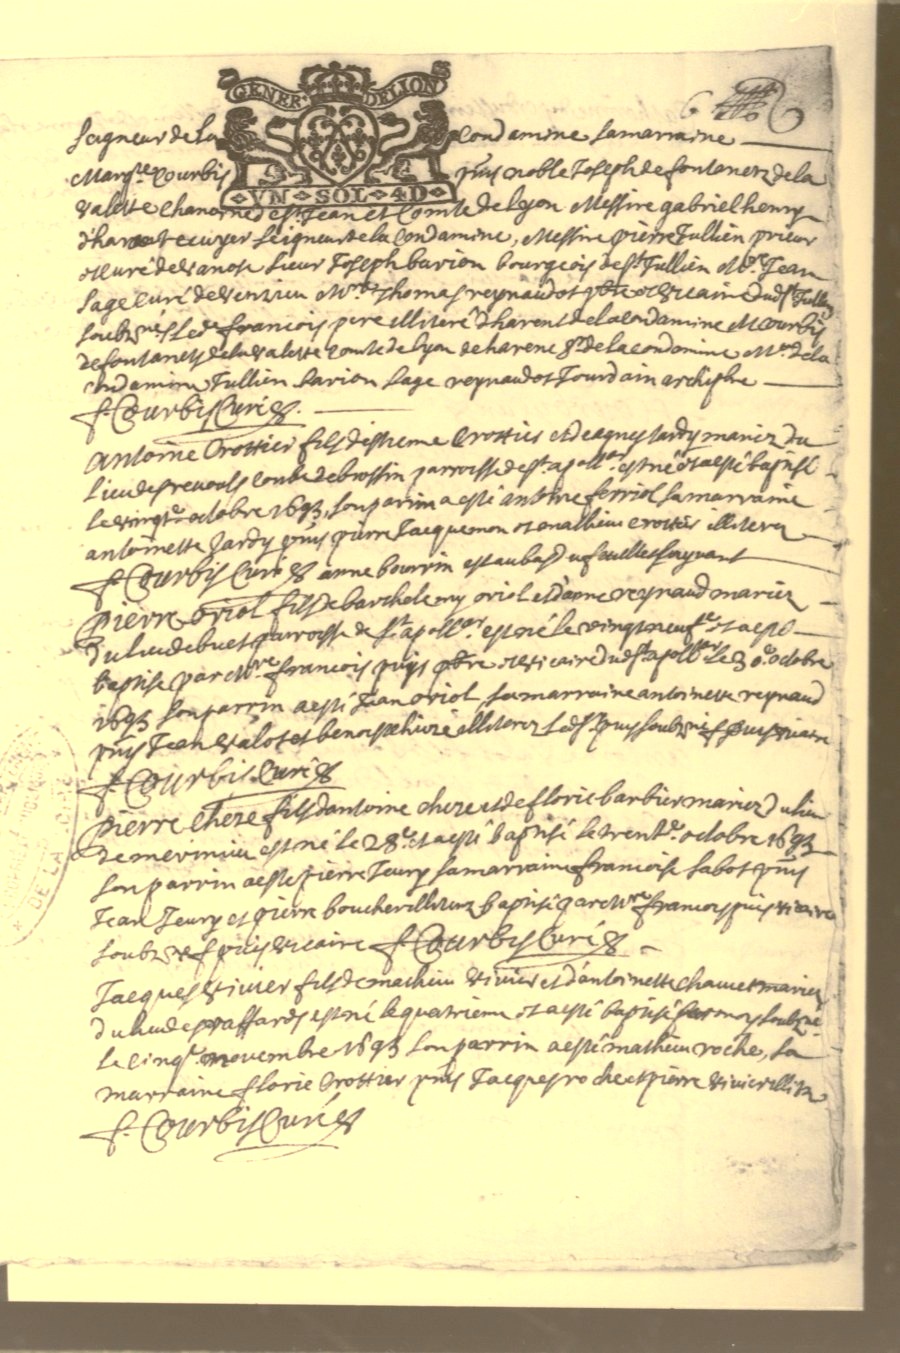 GENER. DE LION
VN SOL 4D
6
Seigneur de La Condamine Sa marraine
Marg.te Courbis p̄ns noble Joseph de fontanetz de la
valette Chanoine d est. Jean et Comte de Lyon Messire gabriel henry
d'harent ecuyer Seigneur de la Condamine, Messire pierre Jullien prieur
et Curé de vanose Sieur Joseph barion bourgeois de st Jullien M.re Jean
Sage Curé de M.re Thomas reynaudot pb̄re et vicaire dud st Jullien
Soubznés Led. francois pere illiteré d'harent de la Condamine M Courbis
de fontanets de la valette Comte de Lyon de harenc Sr de la condamine M. de la
Condamine Jullien barion Sage reynaudot Jourdain archipbre
f. Courbis Curé
antoine Crottier fils d'estienne Crottier et de agnes Jardy mariez du
Lieu des revouls Combe de brossin parroisse de st. apoll.ar est né et a esté baptisé
Le vingt.e octobre 1693, Son parrin a esté antoine ferriol Sa marraine
antoinette Jardy p̄ns pierre Jacquemon et mathieu Crottier illiterez
f. Courbis Curé anne bourrin est au bas du feuillet Suyvant
pierre oriol fils de barthelemy oriol et d'anne reynaud mariez
du lieu de buet parroisse de st apoll.ar est né le vingt neuf.e et a esté
baptisé par M.re francois puys pb̄re et vicaire dud st apoll.ar le 30.e octobre
1693 Son parrin a esté Jean oriol, Sa marraine antoinette reynaud
p̄ns Jean valot et benoist illiterez Led. Sr puys Soubzné f puys vicaire
f. Courbis Curé
pierre Cheze fils d'antoine cheze et de florie barbier mariez du lieu
de merinieu est né le 28.e et a esté baptisé le trent.e octobre 1693
Son parrin a esté pierre Jeury Sa marraine francoise Sabot p̄ns
Jean Jeury et pierre boucher illiterez baptisé par M.re francoys puis vicaire
Soubzné f puis vicaire f. Courbis Curé
Jacques vivier fils de mathieu vivier et d'antoinette Chauvet mariez
du lieu des vaffards est né le quatrieme et a esté baptisé par moy Soubzné
Le cinq.e novembre 1693 Son parrin a esté mathieu roche, Sa
marraine florie Crottier p̄ns Jacques roche et pierre vivier illiterez
f. Courbis Curé
DE LA